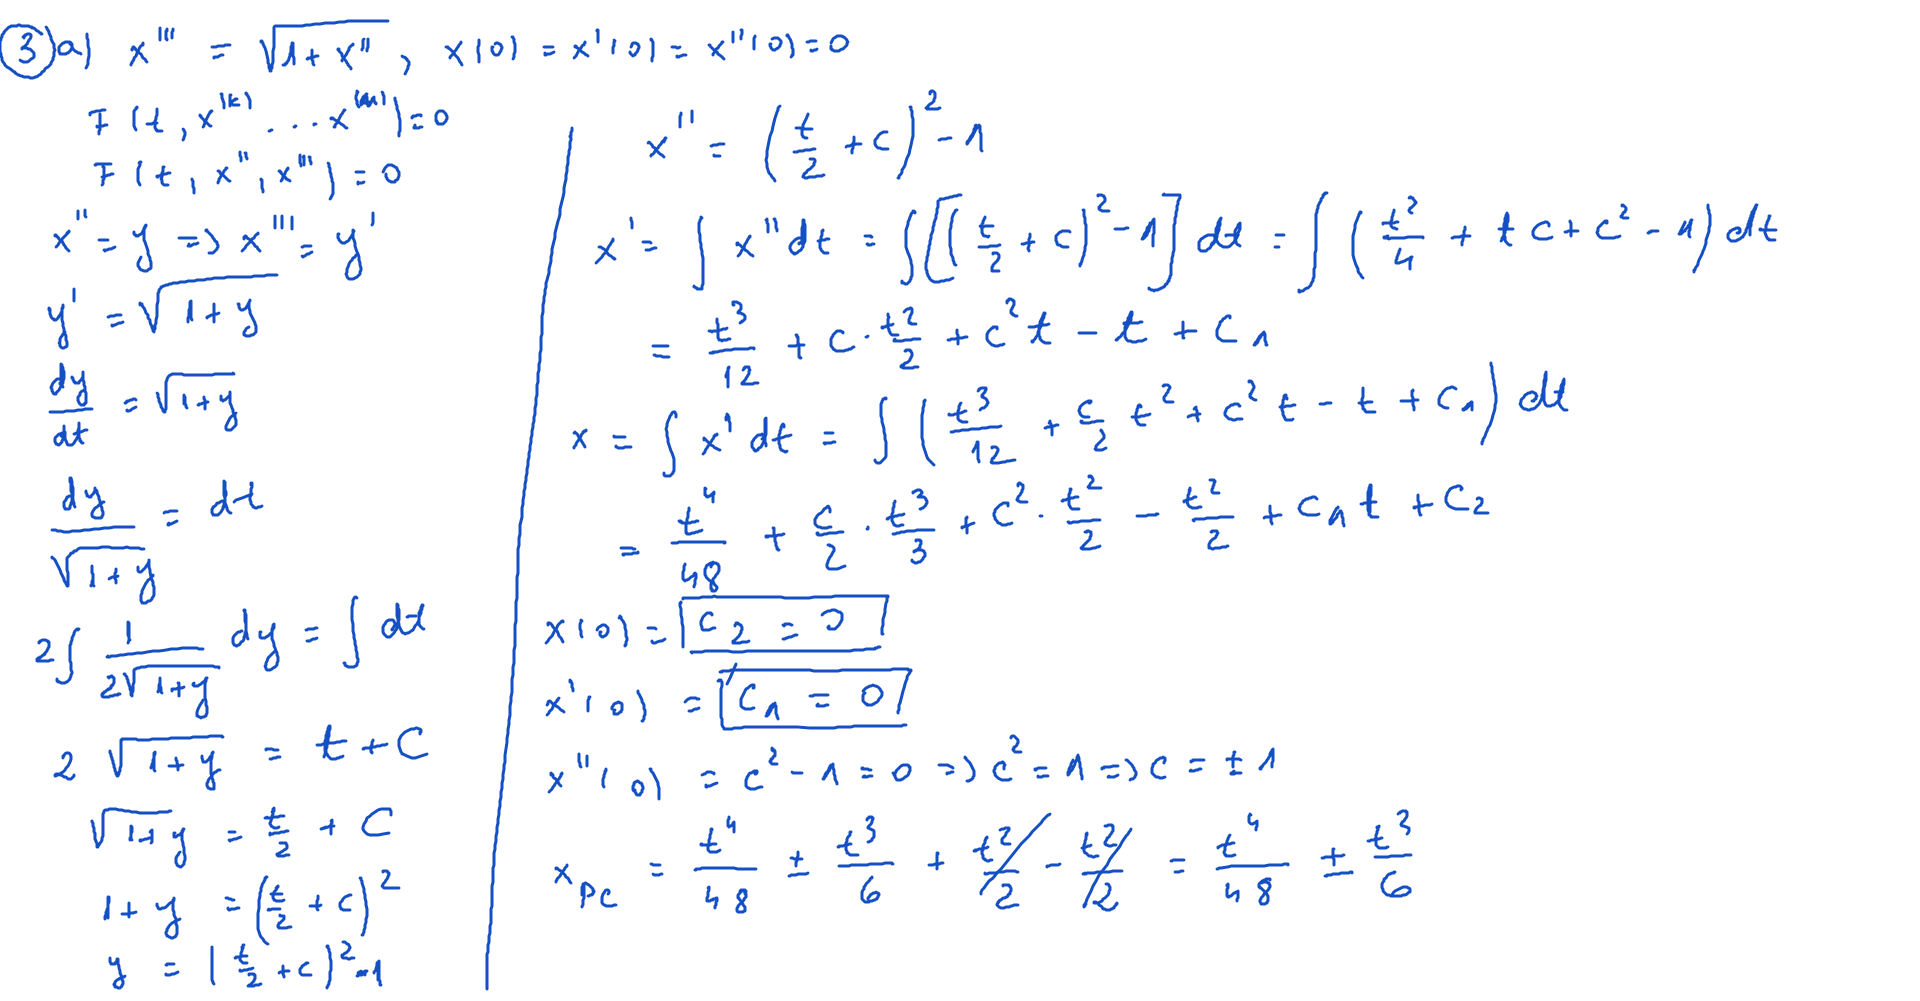 3) a) x''' = √(1+x''), x(0) = x'(0) = x''(0) = 0
F(t, x^(k) ... x^(n)) = 0
F(t, x'', x''') = 0
x'' = y => x''' = y'
y' = √(1+y)
dy/dt = √(1+y)
dy/√(1+y) = dt
2∫ 1/(2√(1+y)) dy = ∫ dt
2 √(1+y) = t + C
√(1+y) = t/2 + C
1+y = (t/2 + c)^2
y = (t/2 + c)^2 - 1
x'' = (t/2 + c)^2 - 1
x' = ∫ x'' dt = ∫[(t/2 + c)^2 - 1] dt = ∫ (t^2/4 + tc + c^2 - 1) dt
= t^3/12 + c · t^2/2 + c^2 t - t + c_1
x = ∫ x' dt = ∫ (t^3/12 + c/2 t^2 + c^2 t - t + c_1) dt
= t^4/48 + c/2 · t^3/3 + c^2 · t^2/2 - t^2/2 + c_1 t + c_2
x(0) = c_2 = 0
x'(0) = c_1 = 0
x''(0) = c^2 - 1 = 0 => c^2 = 1 => c = ± 1
x_PC = t^4/48 ± t^3/6 + t^2/2 - t^2/2 = t^4/48 ± t^3/6